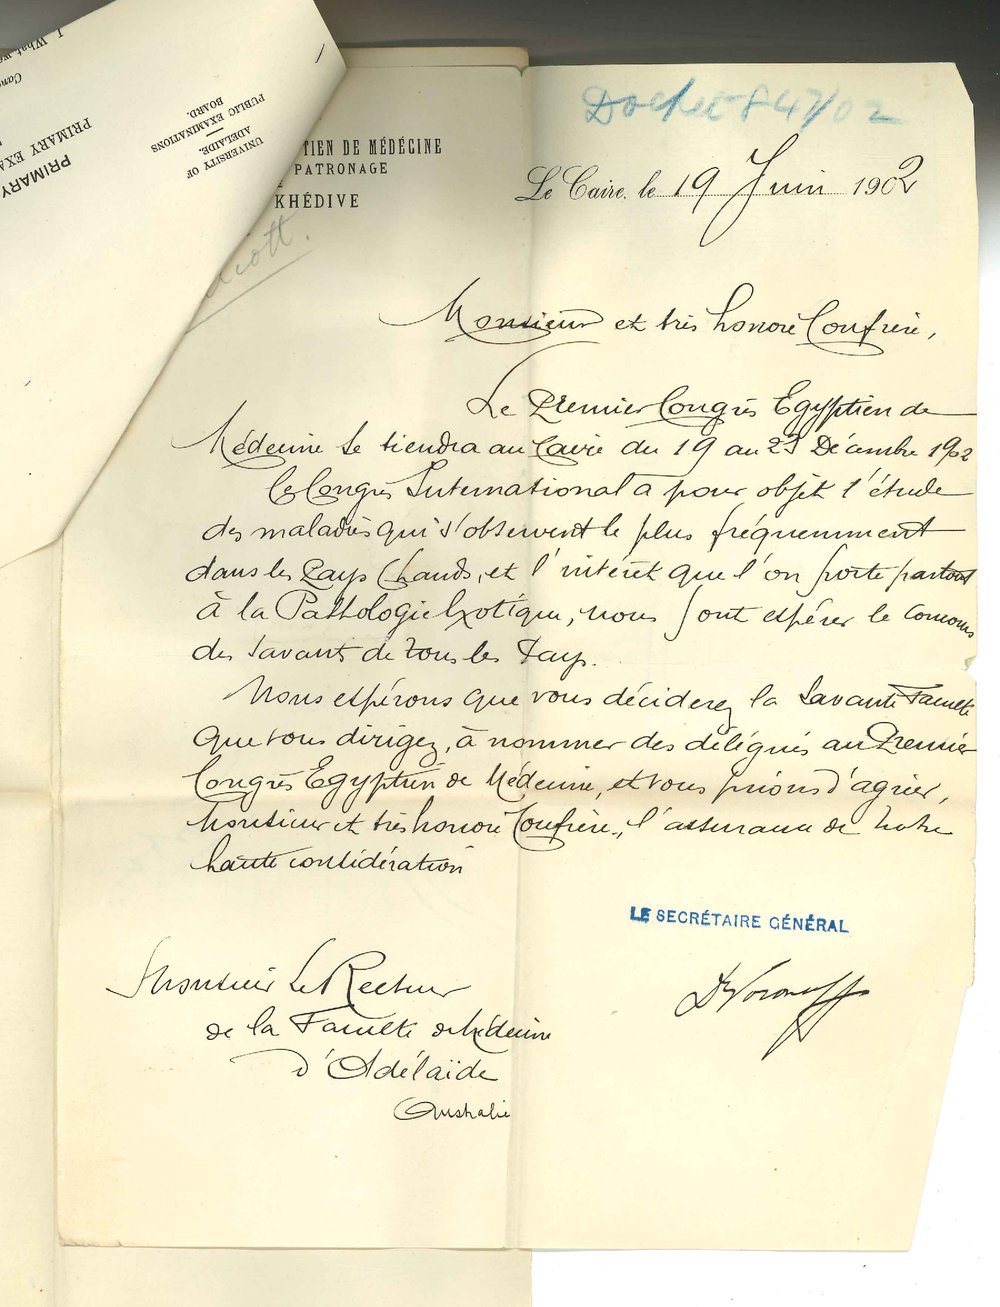 I. What
Can
PRIMARY EXA
PRIMARY
UNIVERSITY OF
ADELAIDE.
PUBLIC EXAMINATIONS
BOARD.
Docket 847/02
TIEN DE MÉDECINE
PATRONAGE
KHÉDIVE
Le Caire, le 19 Juin 1902
Monsieur et très honoré Confrère,
Le Premier Congrès Egyptien de
Médecine se tiendra au Caire du 19 au 23 Décembre 1902
Ce Congrès International a pour objet l'étude
des maladies qui s'observent le plus fréquemment
dans les Pays Chauds, et l'intérêt que l'on porte partout
à la Pathologie Exotique, nous font espérer le concours
des savants de tous les Pays.
Nous espérons que vous déciderez la Savante Faculté
que vous dirigez, à nommer des délégués au Premier
Congrès Egyptien de Médecine, et vous prions d'agréer,
Monsieur et très honoré Confrère, l'assurance de notre
haute considération
LE SECRÉTAIRE GÉNÉRAL
Dr Voronoff
Monsieur Le Recteur
de la Faculté de Médecine
d'Adélaïde
Australie